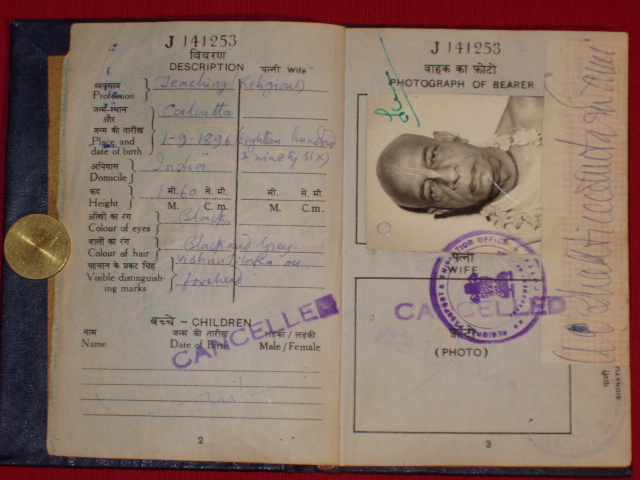 J 141253
विवरण
DESCRIPTION
पत्नी Wife
व्यवसाय
Profession
Teaching (Religious)
जन्म-स्थान
और
जन्म की तारीख
Place and
date of birth
Calcutta
1-9-1896 (eighteen hundred
& ninety six)
अधिवास
Domicile
India
कद
Height
मी. सें. मी.
1.60
M. C.m.
मी. सें. मी.
M. C.m.
आँखों का रंग
Colour of eyes
Black
बालों का रंग
Colour of hair
Black and Grey
पहचान के प्रकट चिह्न
Visible distinguish-
ing marks
vishnu tiloka on
forehead
CANCELLED
बच्चे - CHILDREN
नाम
Name
जन्म की तारीख
Date of Birth
लड़का / लड़की
Male / Female
2
J 141253
वाहक का फ़ोटो
PHOTOGRAPH OF BEARER
पत्नी
WIFE
CANCELLED
फ़ोटो
(PHOTO)
3
A.C. Bhaktivedanta Swami
पत्नी
SIGNATU